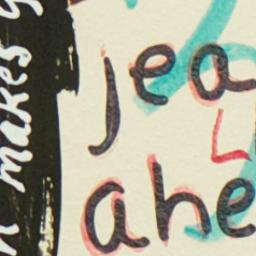 makes
jea
ahe